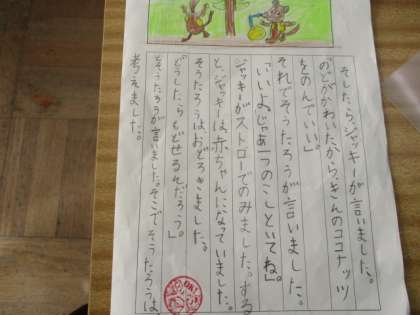 そしたら、ジャッキーが言いました。
「のどがかわいたから、きんのココナッツ
をのんでいい」
それでそうたろうが言いました。
「いいよ。じゃあ一つのこしといてね」
ジャッキーがストローでのみました。する
と、ジャッキーは、赤ちゃんになっていました。
そうたろうはおどろきました。
「どうしたらもどせるんだろう。」
そうたろうが言いました。そこでそうたろうは、
考えました。